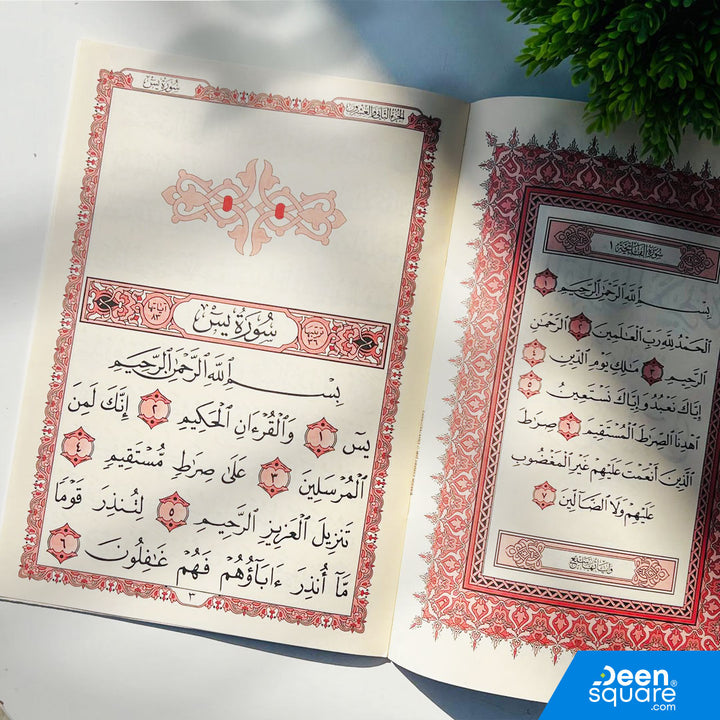 سُورَةُ الفَاتِحَةِ ١
بِسْمِ ٱللَّهِ ٱلرَّحْمَٰنِ ٱلرَّحِيمِ ١
ٱلْحَمْدُ لِلَّهِ رَبِّ ٱلْعَٰلَمِينَ ٢ ٱلرَّحْمَٰنِ
ٱلرَّحِيمِ ٣ مَٰلِكِ يَوْمِ ٱلدِّينِ ٤
إِيَّاكَ نَعْبُدُ وَإِيَّاكَ نَسْتَعِينُ ٥
ٱهْدِنَا ٱلصِّرَٰطَ ٱلْمُسْتَقِيمَ ٦ صِرَٰطَ
ٱلَّذِينَ أَنْعَمْتَ عَلَيْهِمْ غَيْرِ ٱلْمَغْضُوبِ
عَلَيْهِمْ وَلَا ٱلضَّآلِّينَ ٧
الجُزْءُ الثَّانِي وَالعِشْرُونَ
سُورَةُ يسٓ
ترتيبها ٣٦ سُورَةُ يسٓ آياتها ٨٣
بِسْمِ ٱللَّهِ ٱلرَّحْمَٰنِ ٱلرَّحِيمِ
يسٓ ١ وَٱلْقُرْءَانِ ٱلْحَكِيمِ ٢ إِنَّكَ لَمِنَ
ٱلْمُرْسَلِينَ ٣ عَلَىٰ صِرَٰطٍ مُّسْتَقِيمٍ ٤
تَنزِيلَ ٱلْعَزِيزِ ٱلرَّحِيمِ ٥ لِتُنذِرَ قَوْمًا
مَّآ أُنذِرَ ءَابَآؤُهُمْ فَهُمْ غَٰفِلُونَ ٦
٣
Deen®
square
.com